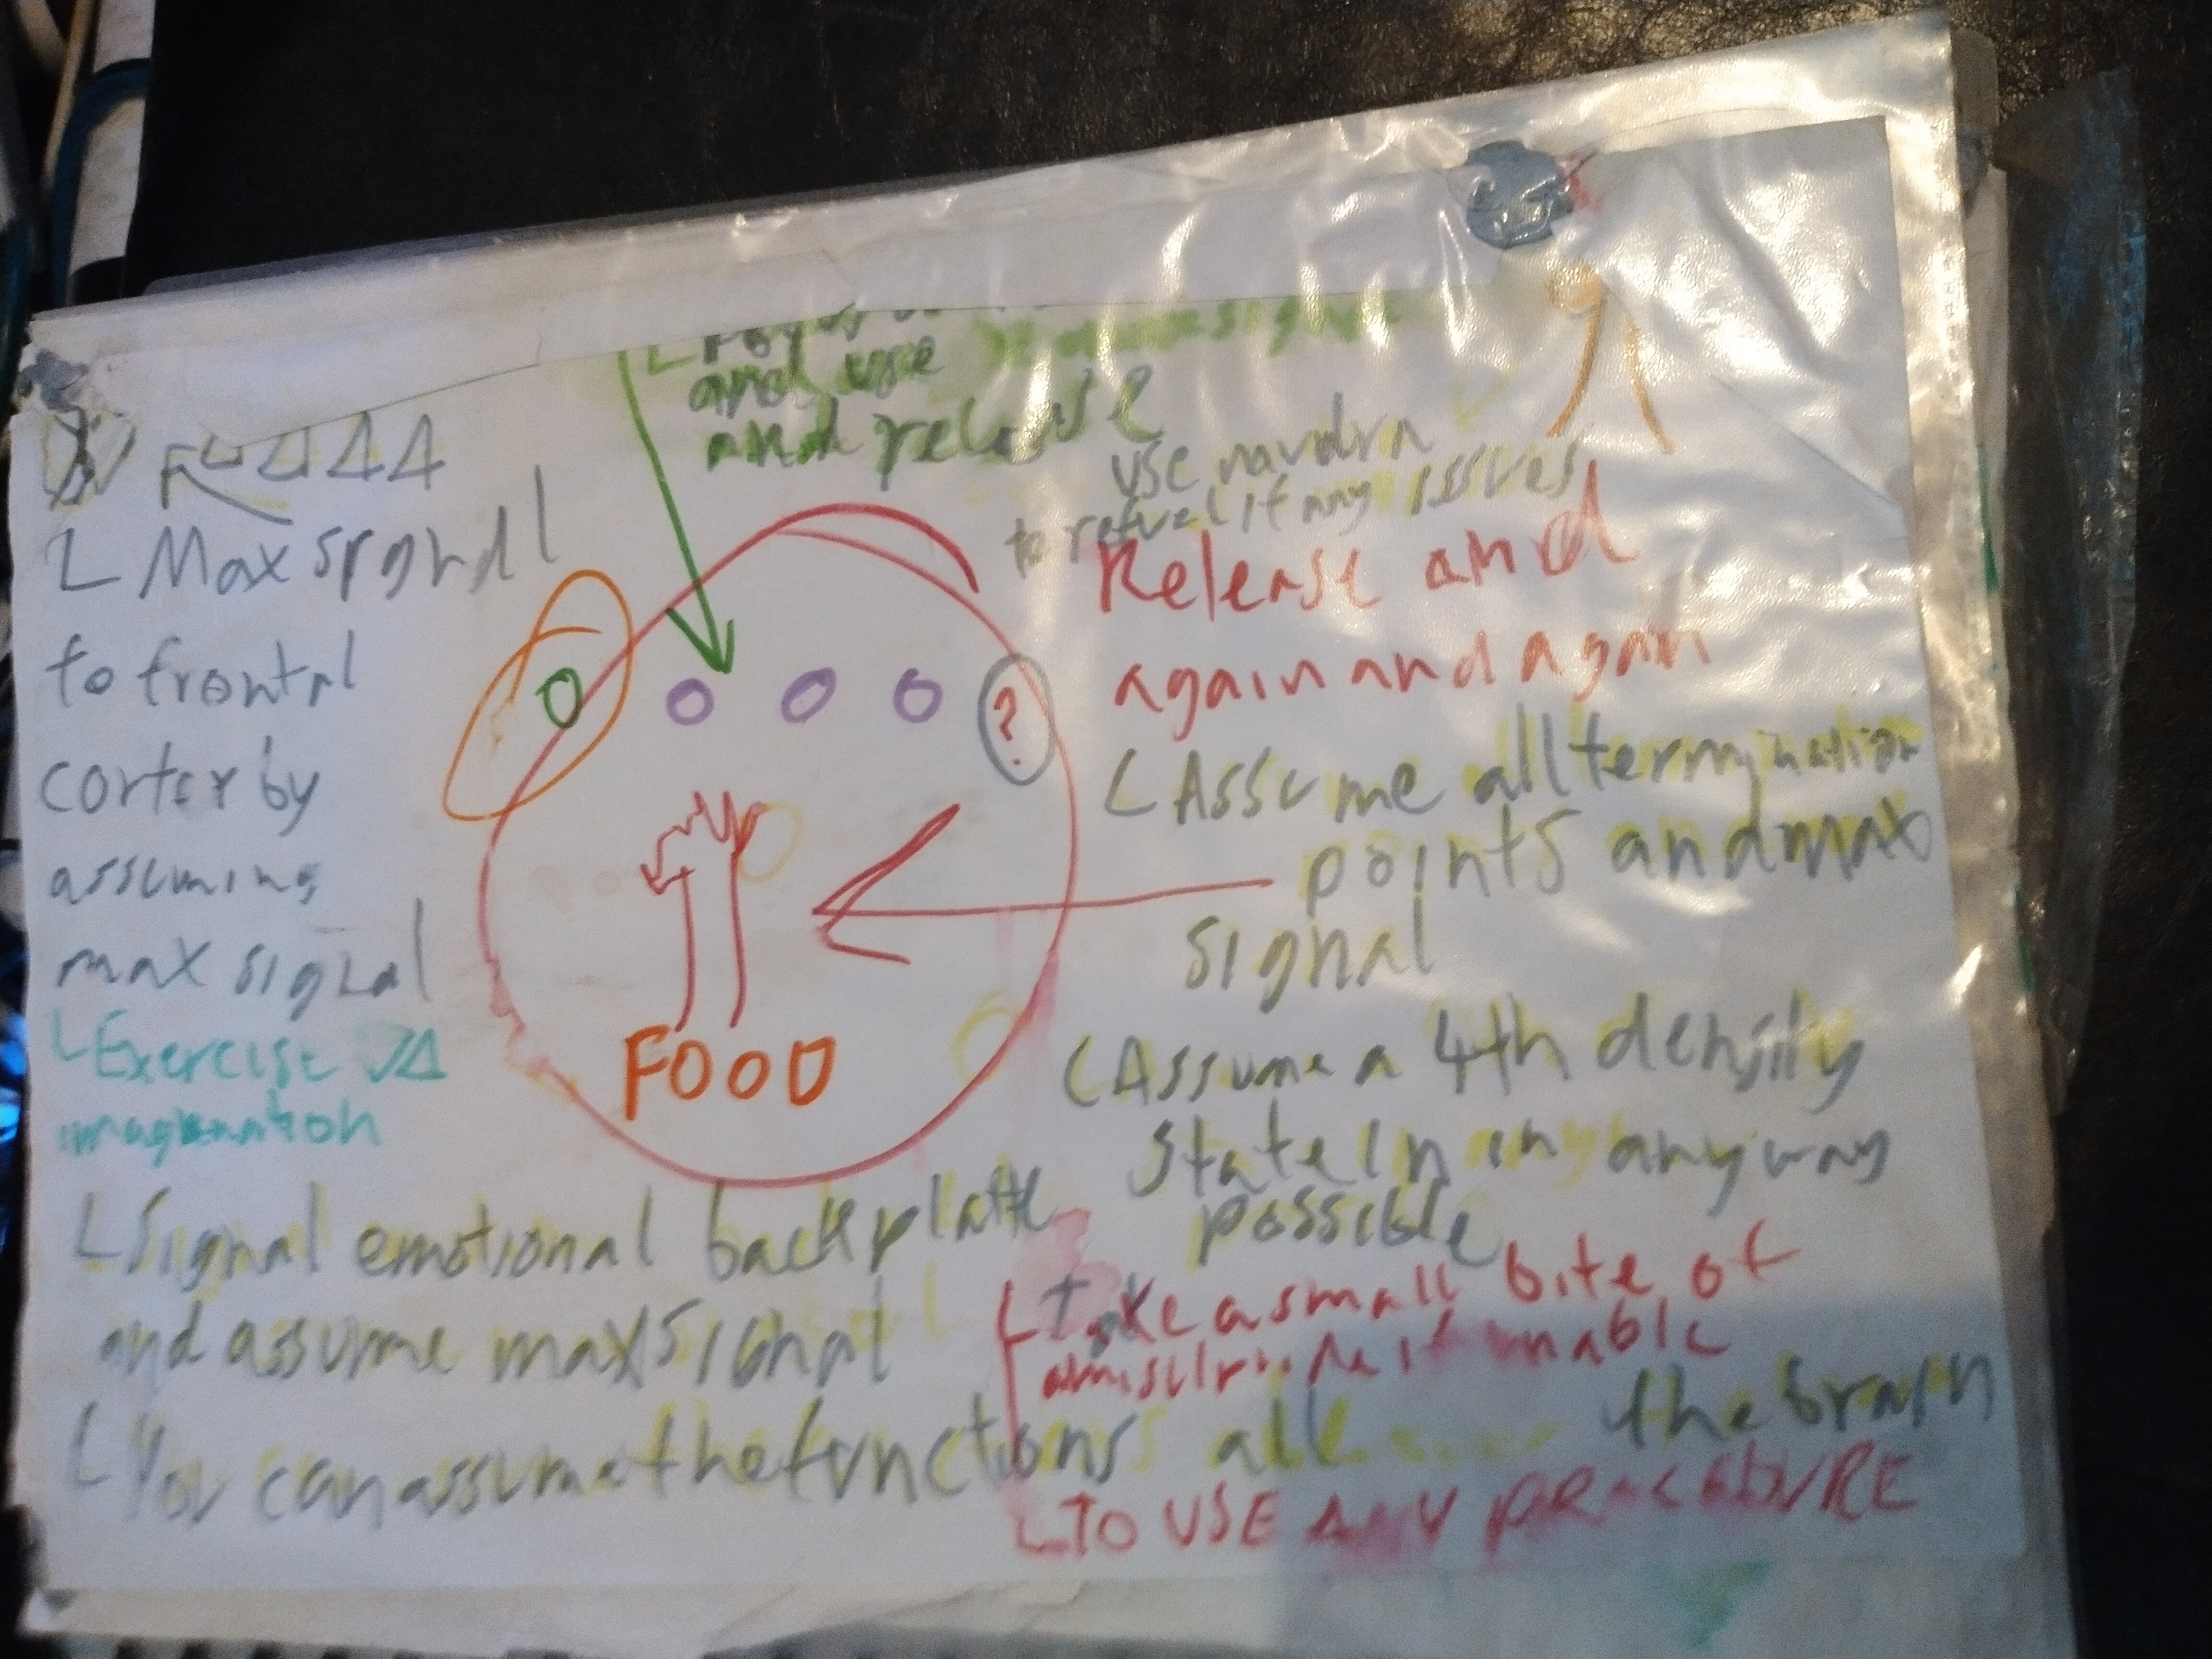 and use
and release
use
to refuel if any issues
L Max signal
to frontal
cortex by
assuming
max signal
L Exercise
imagination
?
FOOD
Release and
again and again
L Assume all termination
points and max
signal
L Assume a 4th density
state in in any way
possible
L Signal emotional backplate
and assume max signal
L Take a small bite of
if unable
L You can assume the functions all the brain
L TO USE ANY